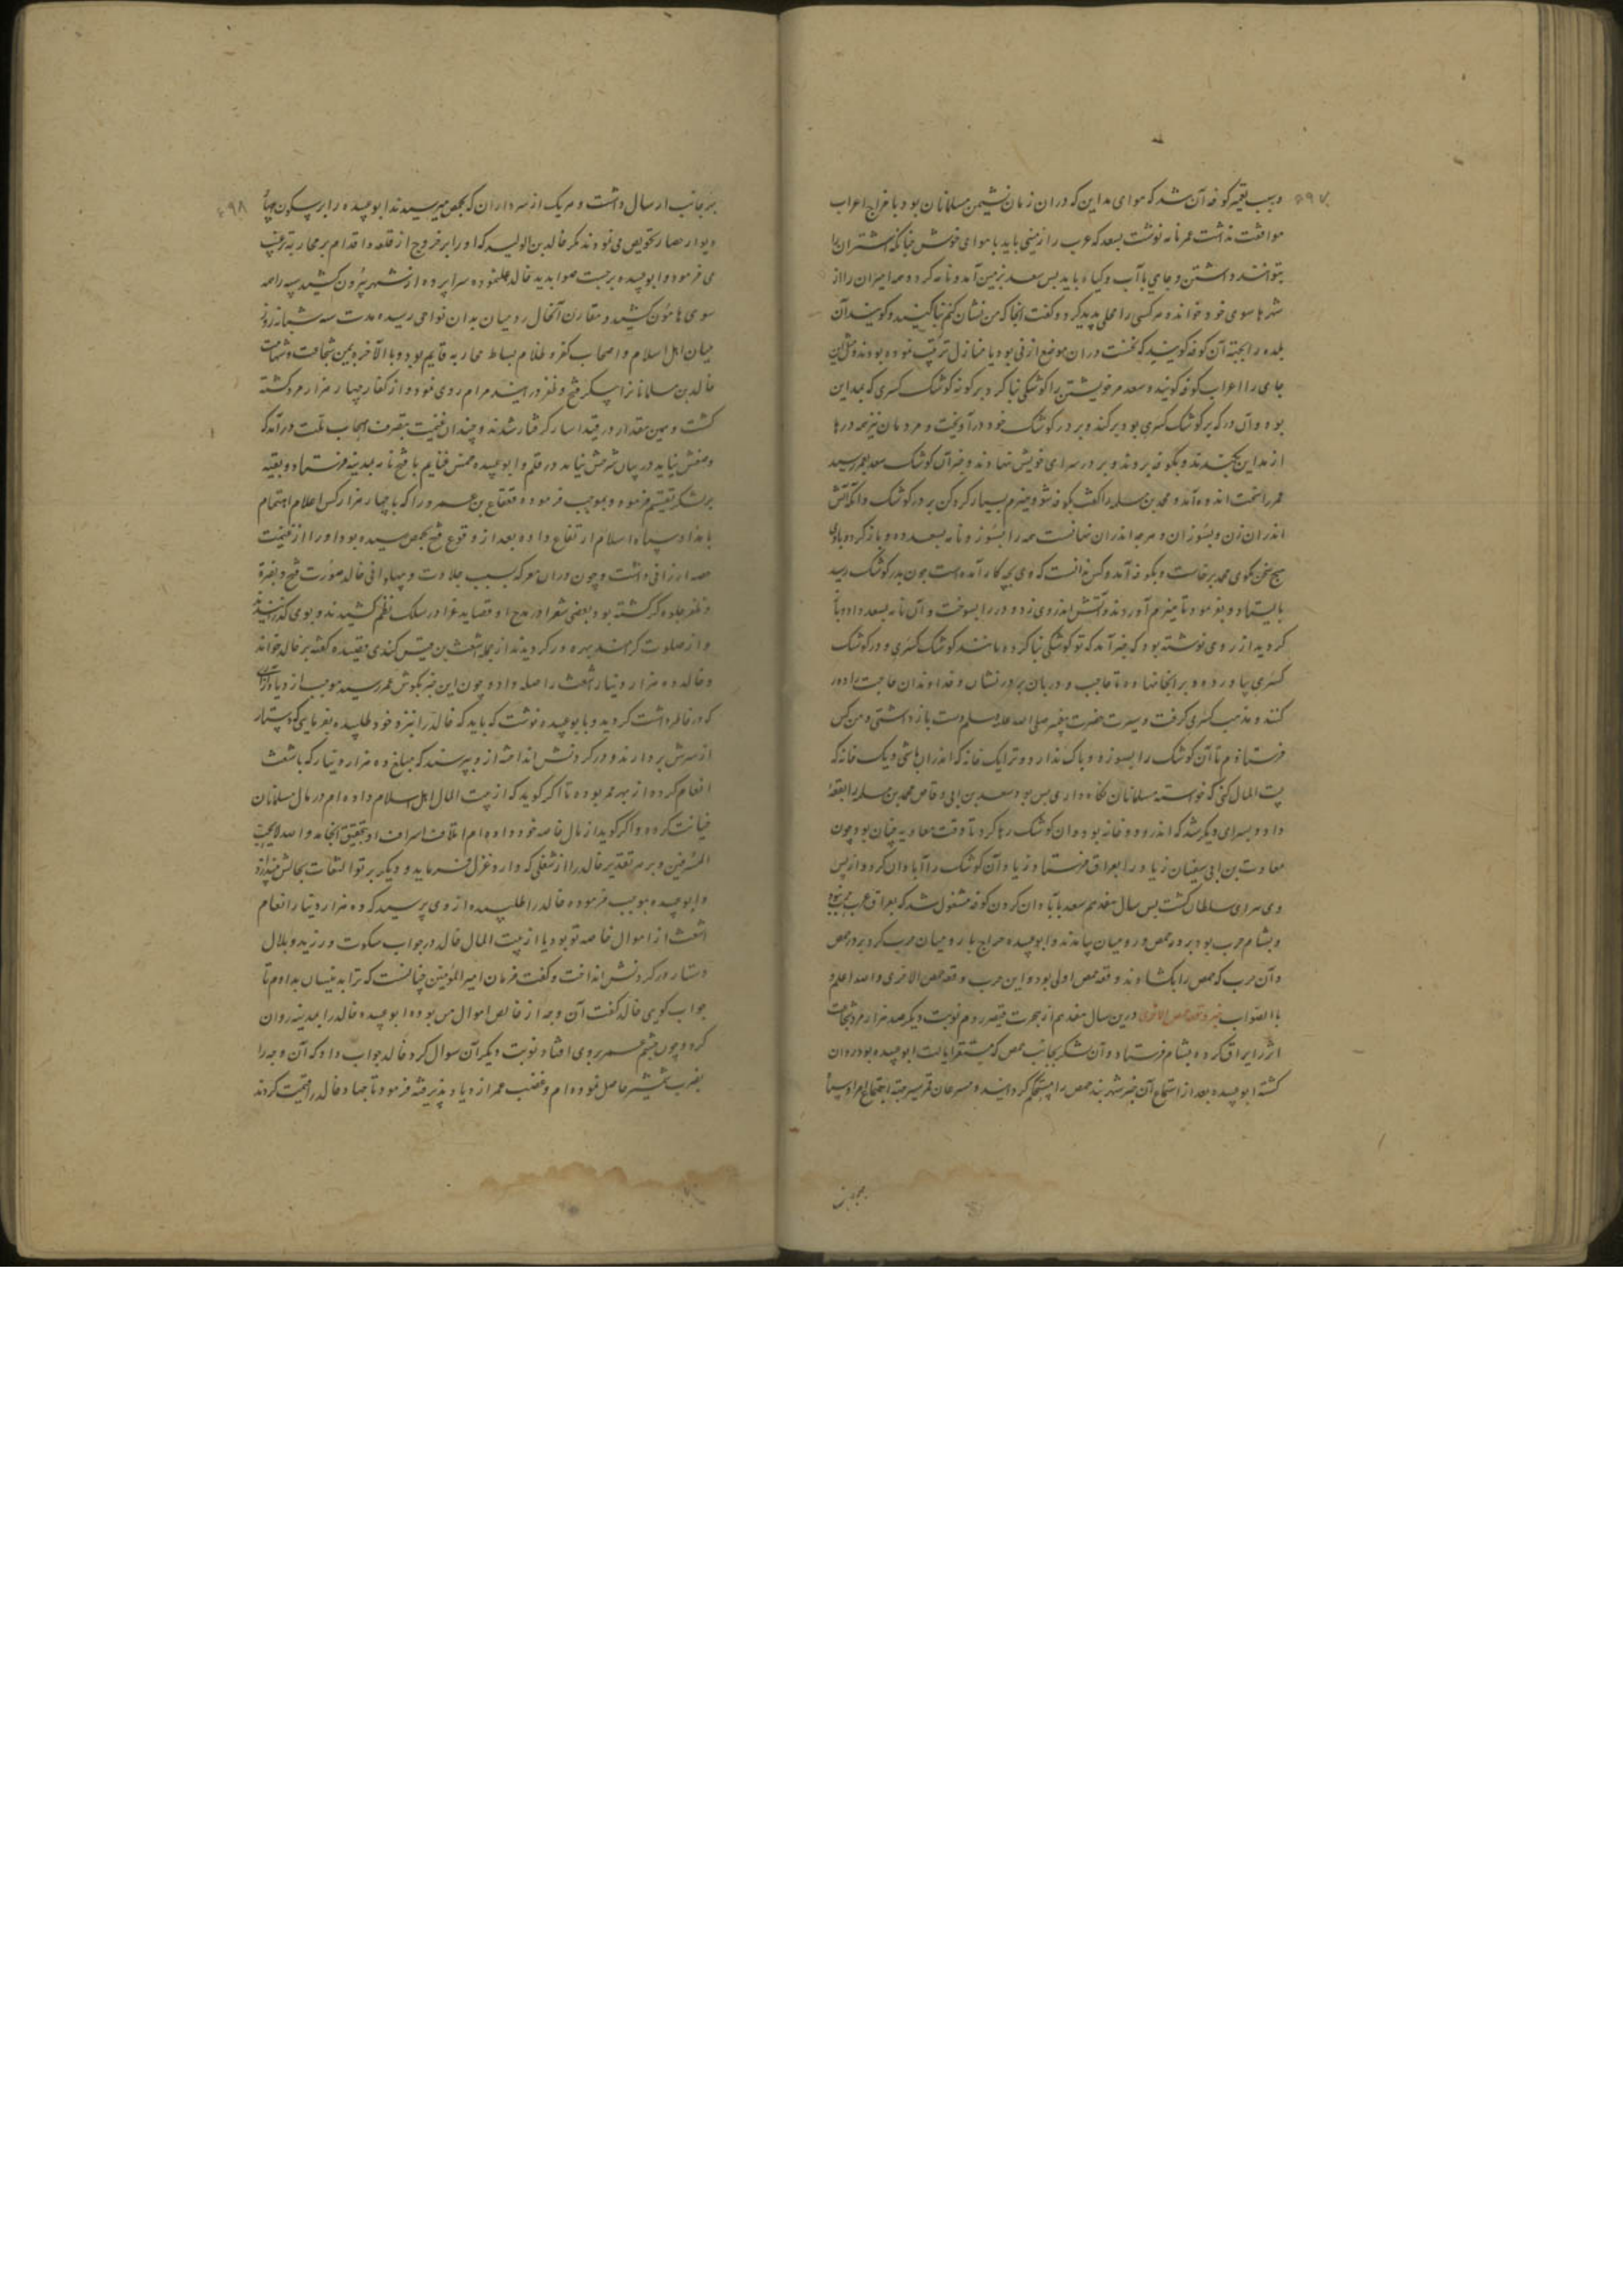 ۵۹۷
و سبب تعمیر کوفه آن شد که هوای مداین که دران زمان نشیمن مسلمانان بود با مزاج اعراب
موافقت نداشت عمر نامه نوشت بسعد که عرب را زمینی باید با هوای خوش چنانکه اشتران را
بتوانند داشتن و جای با آب و گیاه باید پس سعد بزمین آمد و نامه کرد و همه امیران را از
شهرها سوی خود خواند و هر کسی را محلی پدید کرد و گفت انجا که من نشان کنم بنا کنید و گویند آن
بلده را بجهت آن کوفه گویند که نخست دران موضع از نی بود با منازل ترتیب نموده بودند و مثل این
جای را اعراب کوفه گویند و سعد مر خویشتن را کوشکی بنا کرد بر گونه کوشک کسری که بمداین
بود و آن در که بر کوشک کسری بود برکند و بر در کوشک خود درآویخت و مردمان نیز همه درها
از مداین بکندند و بکوفه بردند و بر در سرای خویش نهادند و خبر آن کوشک سعد بعمر رسید
عمر را سخت اندوه آمد و محمد بن مسلمه را گفت بکوفه شو و هیزم بسیار گرد کن بر در کوشک و آنگه آتش
اندران زن و بسوزان و هر چه اندران نهانست همه را بسوز و نامه بسعد ده و باز گرد و با وی
هیچ سخن مگوی محمد برخاست و بکوفه آمد و کس ندانست که وی بچه کار آمده است چون بدر کوشک رسید
بایستاد و بفرمود تا هیزم آوردند و آتش اندر وی زد و در را بسوخت و آن نامه بسعد داد و باز
گردید از وی نوشته بود که خبر آمد که تو کوشکی بنا کرده مانند کوشک کسری و در کوشک
کسری بیاورده و بر انجا نهاده تا حاجب و دربان بر در نشان و خداوندان حاجت را دور
کنند و مذهب کسری گرفت و سیرت حضرت پیغمبر صلی الله علیه وسلم دست باز داشتی و من کس
فرستادم تا آن کوشک را بسوزد و باک ندارد و ترا یک خانه که اندران باشی و یک خانه که
بیت المال کنی که خواسته مسلمانان نگاه داری بس بود سعد بن ابی وقاص محمد بن مسلمه را نفقه
داد و بسرای دیگر شد که اندر و دو خانه بود و آن کوشک رها کرد تا وقت معاویه چنان بود چون
معاویت بن ابی سفیان زیاد را بعراق فرستاد و زیاد آن کوشک را آبادان کرد و از پس
وی سرای سلطان گشت پس سال هفدهم سعد بآبادان کردن کوفه مشغول شد که بعراق حرب نبود
و بشام حرب بود بر در حمص و رومیان بیامدند و ابو عبیده جراح با رومیان حرب کرد بر در حمص
و آن حرب که حمص را بگشادند وقعه حمص اولی بود و این حرب وقعه حمص الاخری والله اعلم
باالصواب خبر وقعه حمص الاخری درین سال هفدهم از هجرت قیصر روم نوبت دیگر صد هزار مرد شجاعت
اثر را یراق کرده بشام فرستاد و آن لشکر بجانب حمص که مستقر ایالت ابو عبیده بود روان
گشته ابو عبیده بعد از استماع آن خبر شهر بند حمص را مستحکم گردانید و مسرعان قمر سیر جهة اجتماع امرا و سپاه
۴۹۸
بر جانب ارسال داشت و هر یک از سرداران که بحمص میرسیدند ابو عبیده را بر سکون چهار
دیوار حصار تحریص می نمودند مگر خالد بن الولید که او را بر خروج از قلعه و اقدام بر محاربه ترغیب
می فرمود و ابو عبیده بر حسب صوابدید خالد عمل نموده سراپرده از شهر بیرون کشید سپه را همه
سوی هامون کشید و مقارن آنحال رومیان بدان نواحی رسیده مدت سه شبانه روز
میان اهل اسلام و اصحاب کفر و ظلام بساط محاربه قایم بود و باالآخره بیمن شجاعت و شهامت
خالد بن مسلمانانرا پیکر فتح و ظفر در آینه مرام روی نمود و از کفار چهار هزار مرد کشته
گشت و همین مقدار در قید اسار گرفتار شدند و چندان غنیمت بتصرف اصحاب ملت درآمد که
وصفش نیاید در بیان شرحش نیاید در قلم و ابو عبیده خمس غنایم با فتح نامه بمدینه فرستاد و بقیه
بر لشکر تقسیم فرمود و بموجب فرموده قعقاع بن عمرو را که با چهار هزار کس اعلام اهتمام
بامداد سپاه اسلام ارتفاع داده بعد از وقوع فتح بحمص رسیده بود او را از غنیمت
حصه ارزانی داشت و چون دران معرکه بسبب جلادت و پهلوانی خالد صورت فتح و نصرة
و ظفر جلوه گر گشته بود بعضی شعرا در مدح او قصاید غرا در سلک نظم کشیدند و بوی گذرانیدند
و از صلوت کرامند بهره ور گردیدند از جمله اشعث بن قیس کندی قصیده گفته بر خالد خواند
و خالد ده هزار دینار اشعث را صله داد و چون این خبر بگوش عمر رسید موجب ازدیاد آزاری
که در خاطر داشت گردید و با بو عبیده نوشت که باید که خالد را نزد خود طلبیده بفرمایی که دستار
از سرش بردارند و در گردنش انداخته از و بپرسند که مبلغ ده هزار دینار که باشعث
انعام کرده از بهر چه بوده تا اگر گوید که از بیت المال اهل اسلام داده ام در مال مسلمانان
خیانت کرده و اگر گوید از مال خاصه خود داده ام اتلاف و اسراف او بتحقیق انجامد و الله لا یحب
المسرفین و بر هر تقدیر خالد را از شغلی که دارد عزل فرماید و دیگر پرتو التفات بحالش نیندازد
و ابو عبیده بموجب فرموده خالد را طلبیده از وی پرسید که ده هزار دینار انعام
اشعث از اموال خاصه تو بود یا از بیت المال خالد در جواب سکوت ورزید و بلال
دستار در گردنش انداخت و گفت فرمان امیر المؤمنین چنانست که ترا بدینسان بدارم تا
جواب گوی خالد گفت آن وجه از خالص اموال من بوده ابو عبیده خالد را بمدینه روان
کرد و چون چشم عمر بروی افتاد نوبت دیگر آن سوال کرد خالد جواب داد که آن وجه را
بضرب شمشیر حاصل نموده ام و غضب عمر ازدیاد پذیرفته فرمود تا جهاد خالد را قیمت کردند